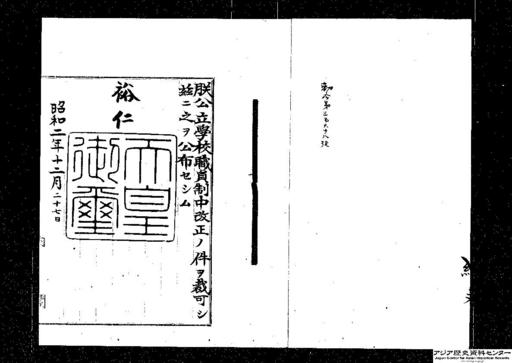 勅令第三百六十八號
朕公立學校職員制中改正ノ件ヲ裁可シ
茲ニ之ヲ公布セシム
裕仁
天皇
御璽
昭和二年十二月二十七日
内閣
アジア歴史資料センター
Japan Center for Asian Historical Records